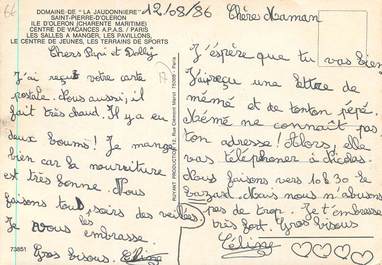 66
DOMAINE-DE " LA JAUDONNIERE "
SAINT-PIERRE-D'OLERON
ILE D'OLERON (CHARENTE MARITIME)
CENTRE DE VACANCES A.P.A.S. / PARIS
LES SALLES A MANGER, LES PAVILLONS,
LE CENTRE DE JEUNES, LES TERRAINS DE SPORTS
12/08/86
Chers Papi et Dolly
J'ai reçu votre carte
postale. Nous aussi, il
fait très chaud. Il y a eu
deux boums! Je mange
bien car la nourriture
est très bonne. Nous
faisons tous soirs des veillés
Je vous embrasse.
Gros bisous. Céline
73851
ROYANT PRODUCTION 8, Rue Clément Marot 75008 - Paris
Chère Maman
J'éspère que tu vas bien
J'ai reçu une lettre de
mémé et de tonton pépé.
Mémé ne connaît pas
ton adresse! Alors, elle
vas téléphoner à Nicolas.
Nous faisons vers 10h30 le
bazard. Mais nous n'abusons
pas de trop. Je t'embrasse
très fort. Gros bisous
Céline